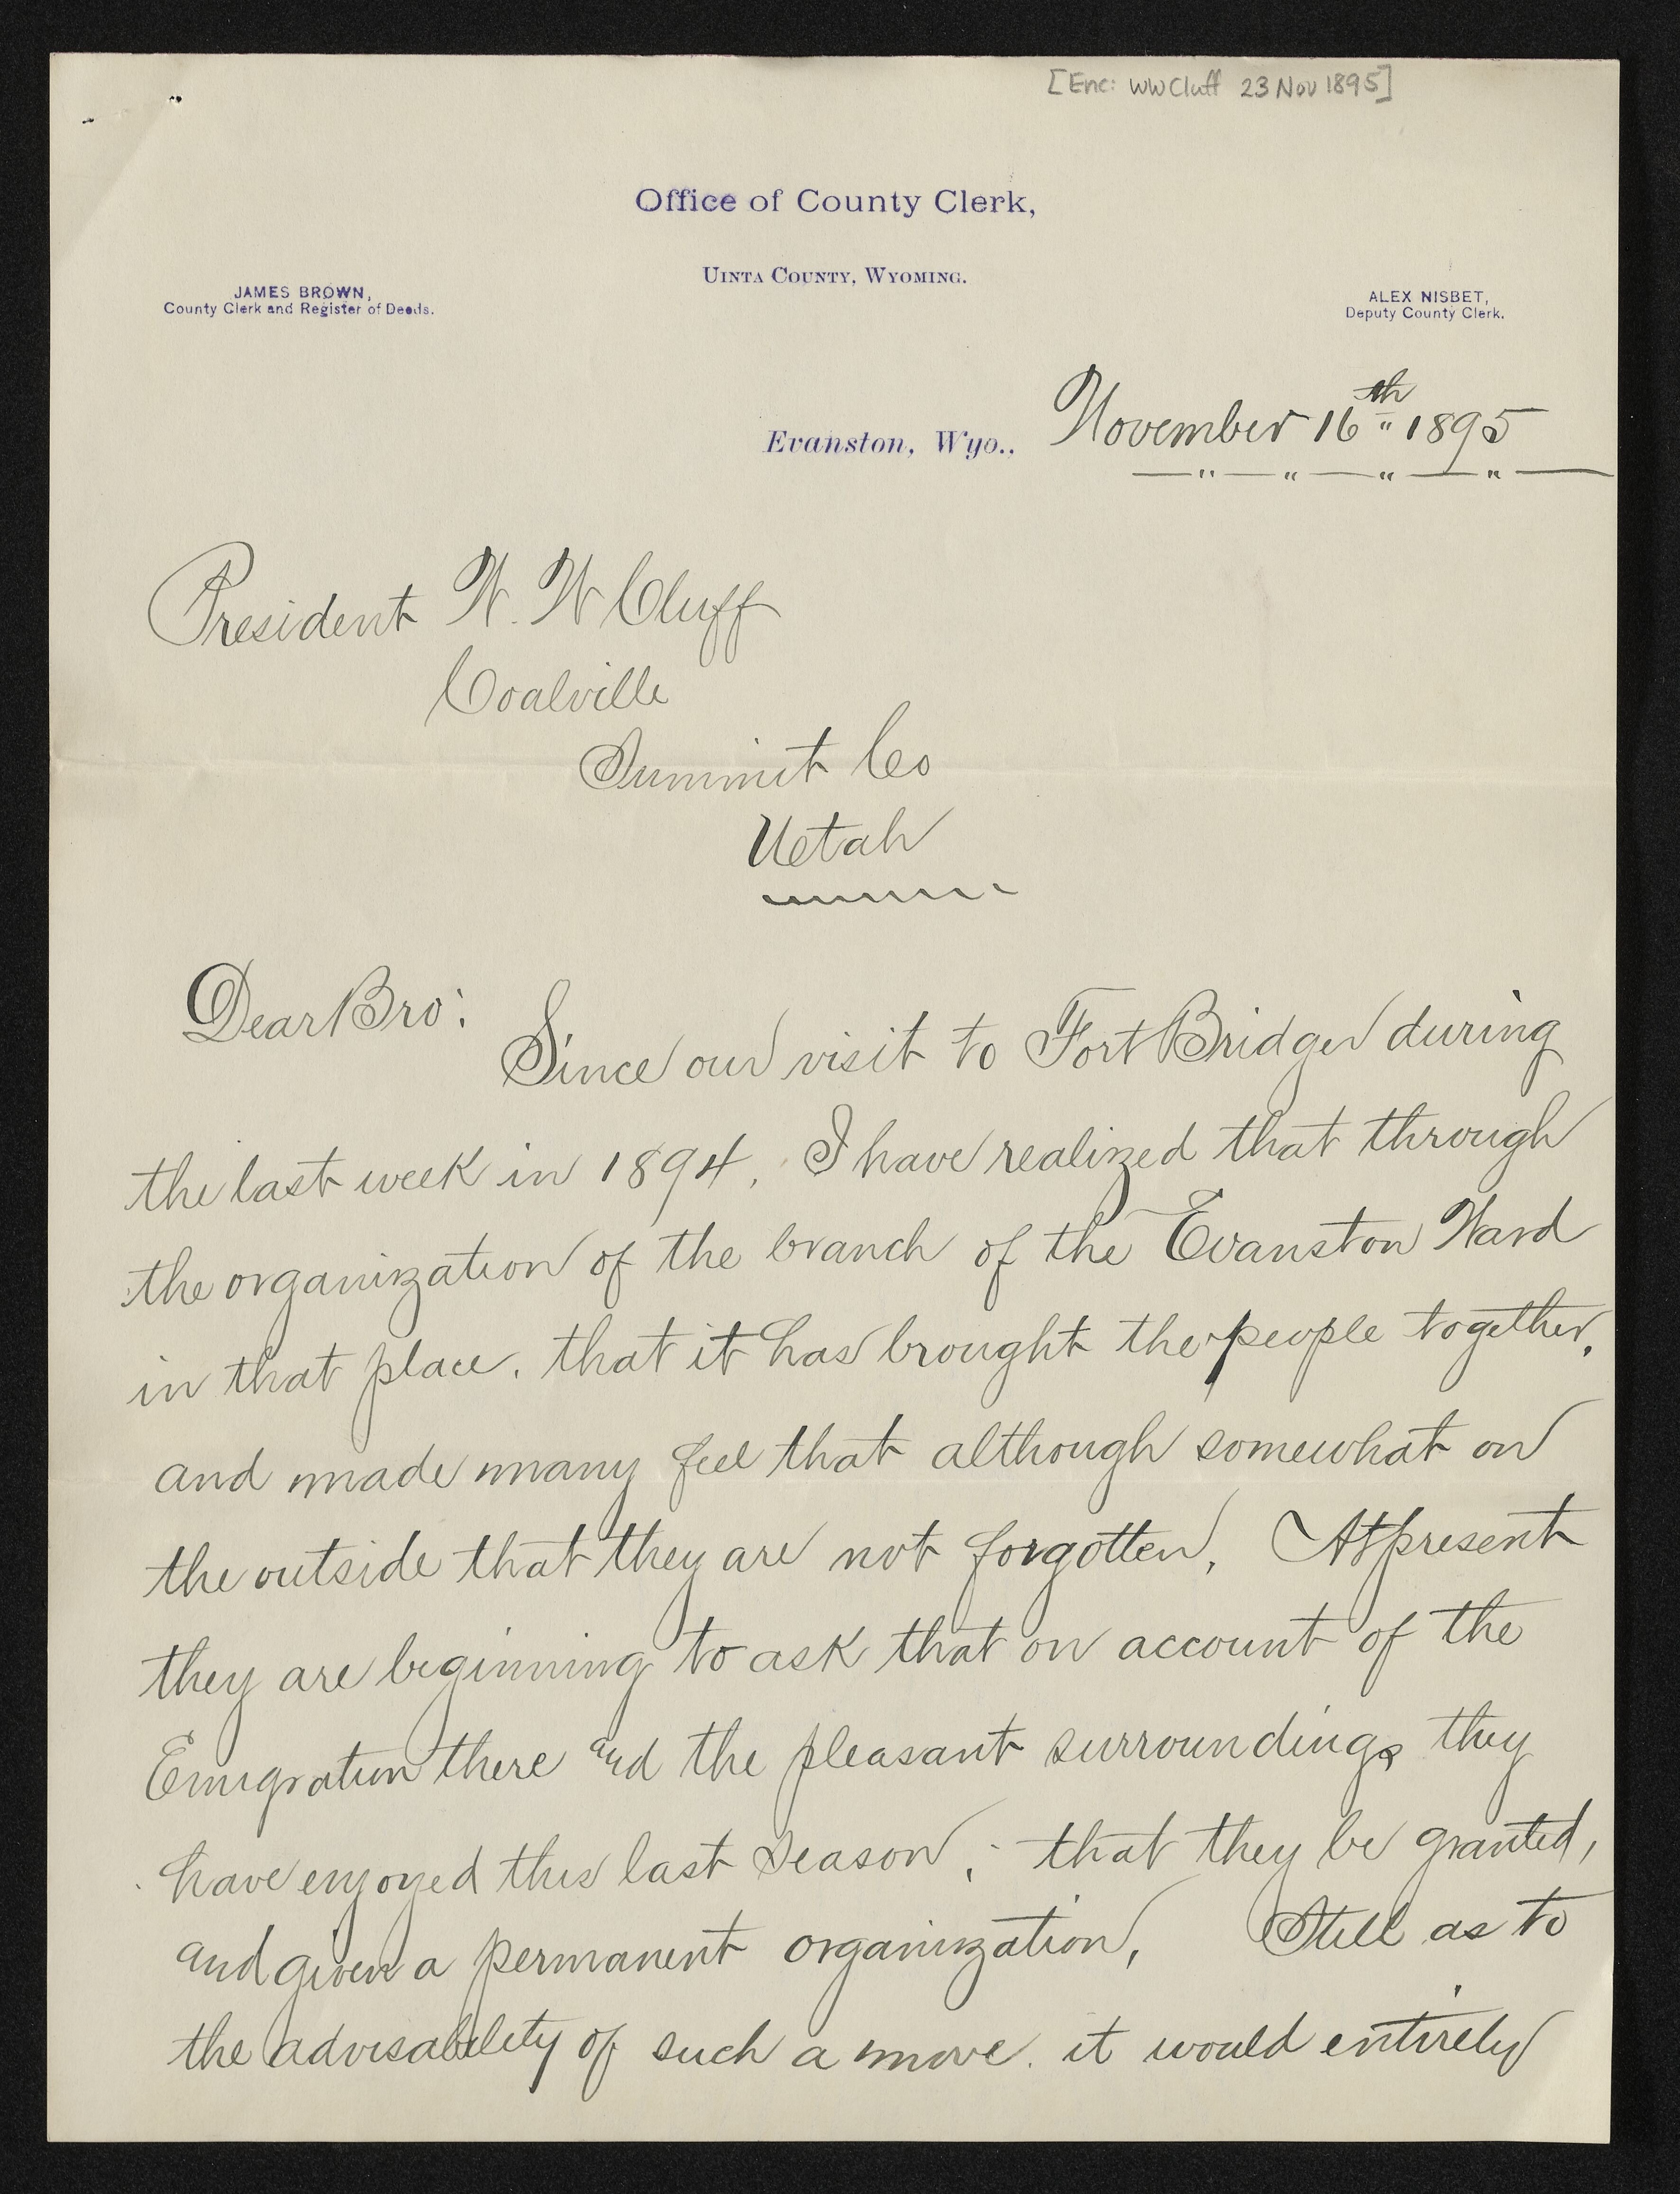 [Enc: WW Cluff 23 Nov 1895]
Office of County Clerk,
Uinta County, Wyoming.
JAMES BROWN,
County Clerk and Register of Deeds.
ALEX NISBET,
Deputy County Clerk.
Evanston, Wyo., November 16th 1895
President W. W Cluff
Coalville
Summit Co
Uetah
Dear Bro:
Since our visit to Fort Bridger during
the last week in 1894, I have realized that through
the organization of the branch of the Evanston Ward
in that place. that it has brought the people together,
and made many feel that although somewhat on
the outside that they are not forgotten, At present
they are beginning to ask that on account of the
Emigration there and the pleasant surroundings they
have enjoyed this last season, that they be granted,
and given a permanent organization, Still as to
the advisability of such a move. it would entirely